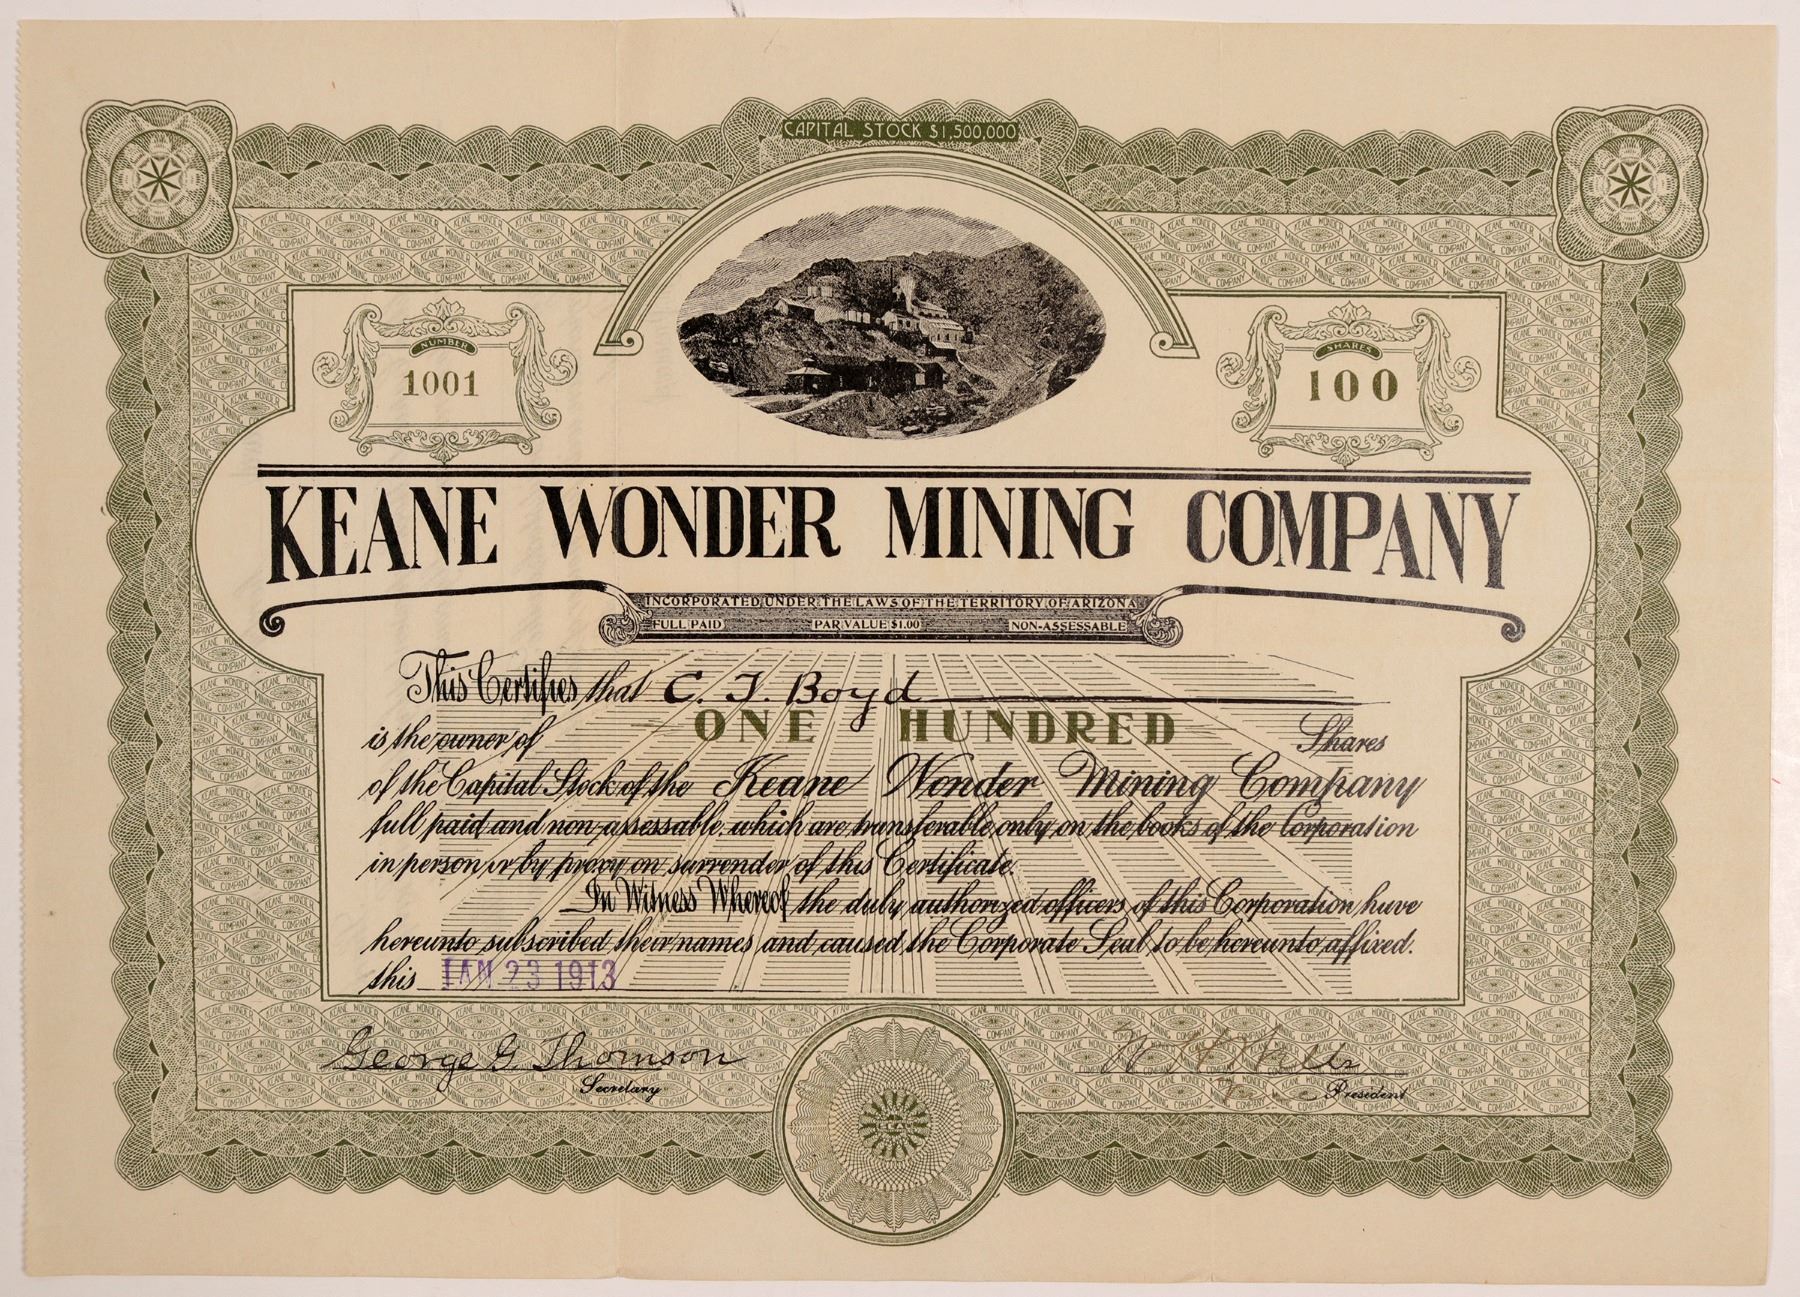 CAPITAL STOCK $1,500,000
NUMBER
1001
SHARES
100
KEANE WONDER MINING COMPANY
INCORPORATED UNDER THE LAWS OF THE TERRITORY OF ARIZONA
FULL PAID PAR VALUE $1.00 NON-ASSESSABLE
This Certifies that C. J. Boyd
is the owner of ONE HUNDRED Shares
of the Capital Stock of the Keane Wonder Mining Company
full paid and non-assessable, which are transferable only on the books of the Corporation
in person or by proxy on surrender of this Certificate.
In Witness Whereof the duly authorized officers of this Corporation have
hereunto subscribed their names and caused the Corporate Seal to be hereunto affixed.
this JAN 23 1913
George G. Thomson
Secretary
President
SEAL
KEANE WONDER MINING COMPANY